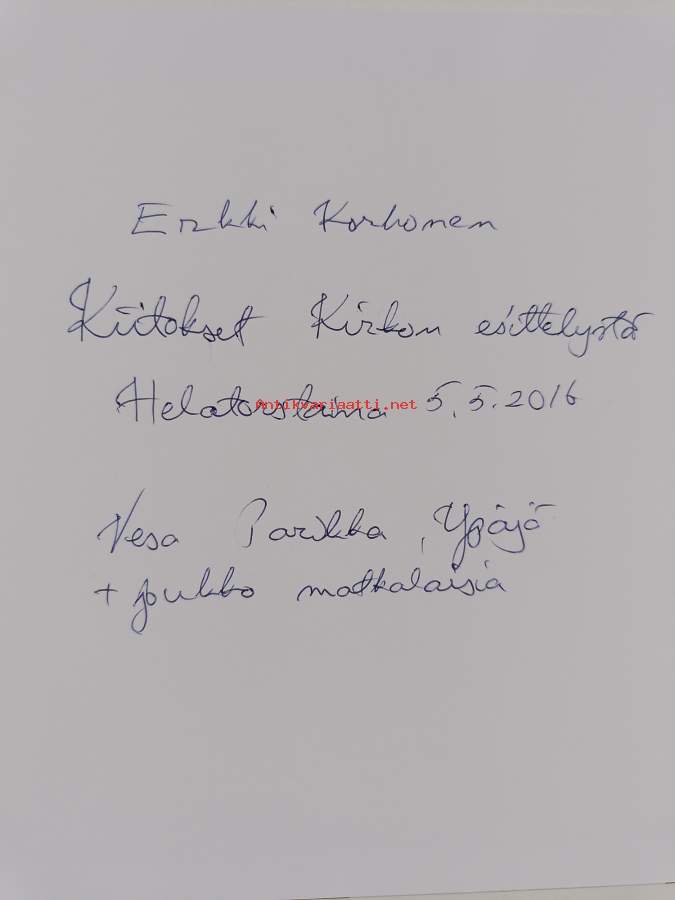 Erkki Korhonen
Kiitokset Kirkon esittelystä
Helatorstaina 5.5.2016
antikvariaatti.net
Vesa Parikka, Ypäjä
+ joukko matkalaisia